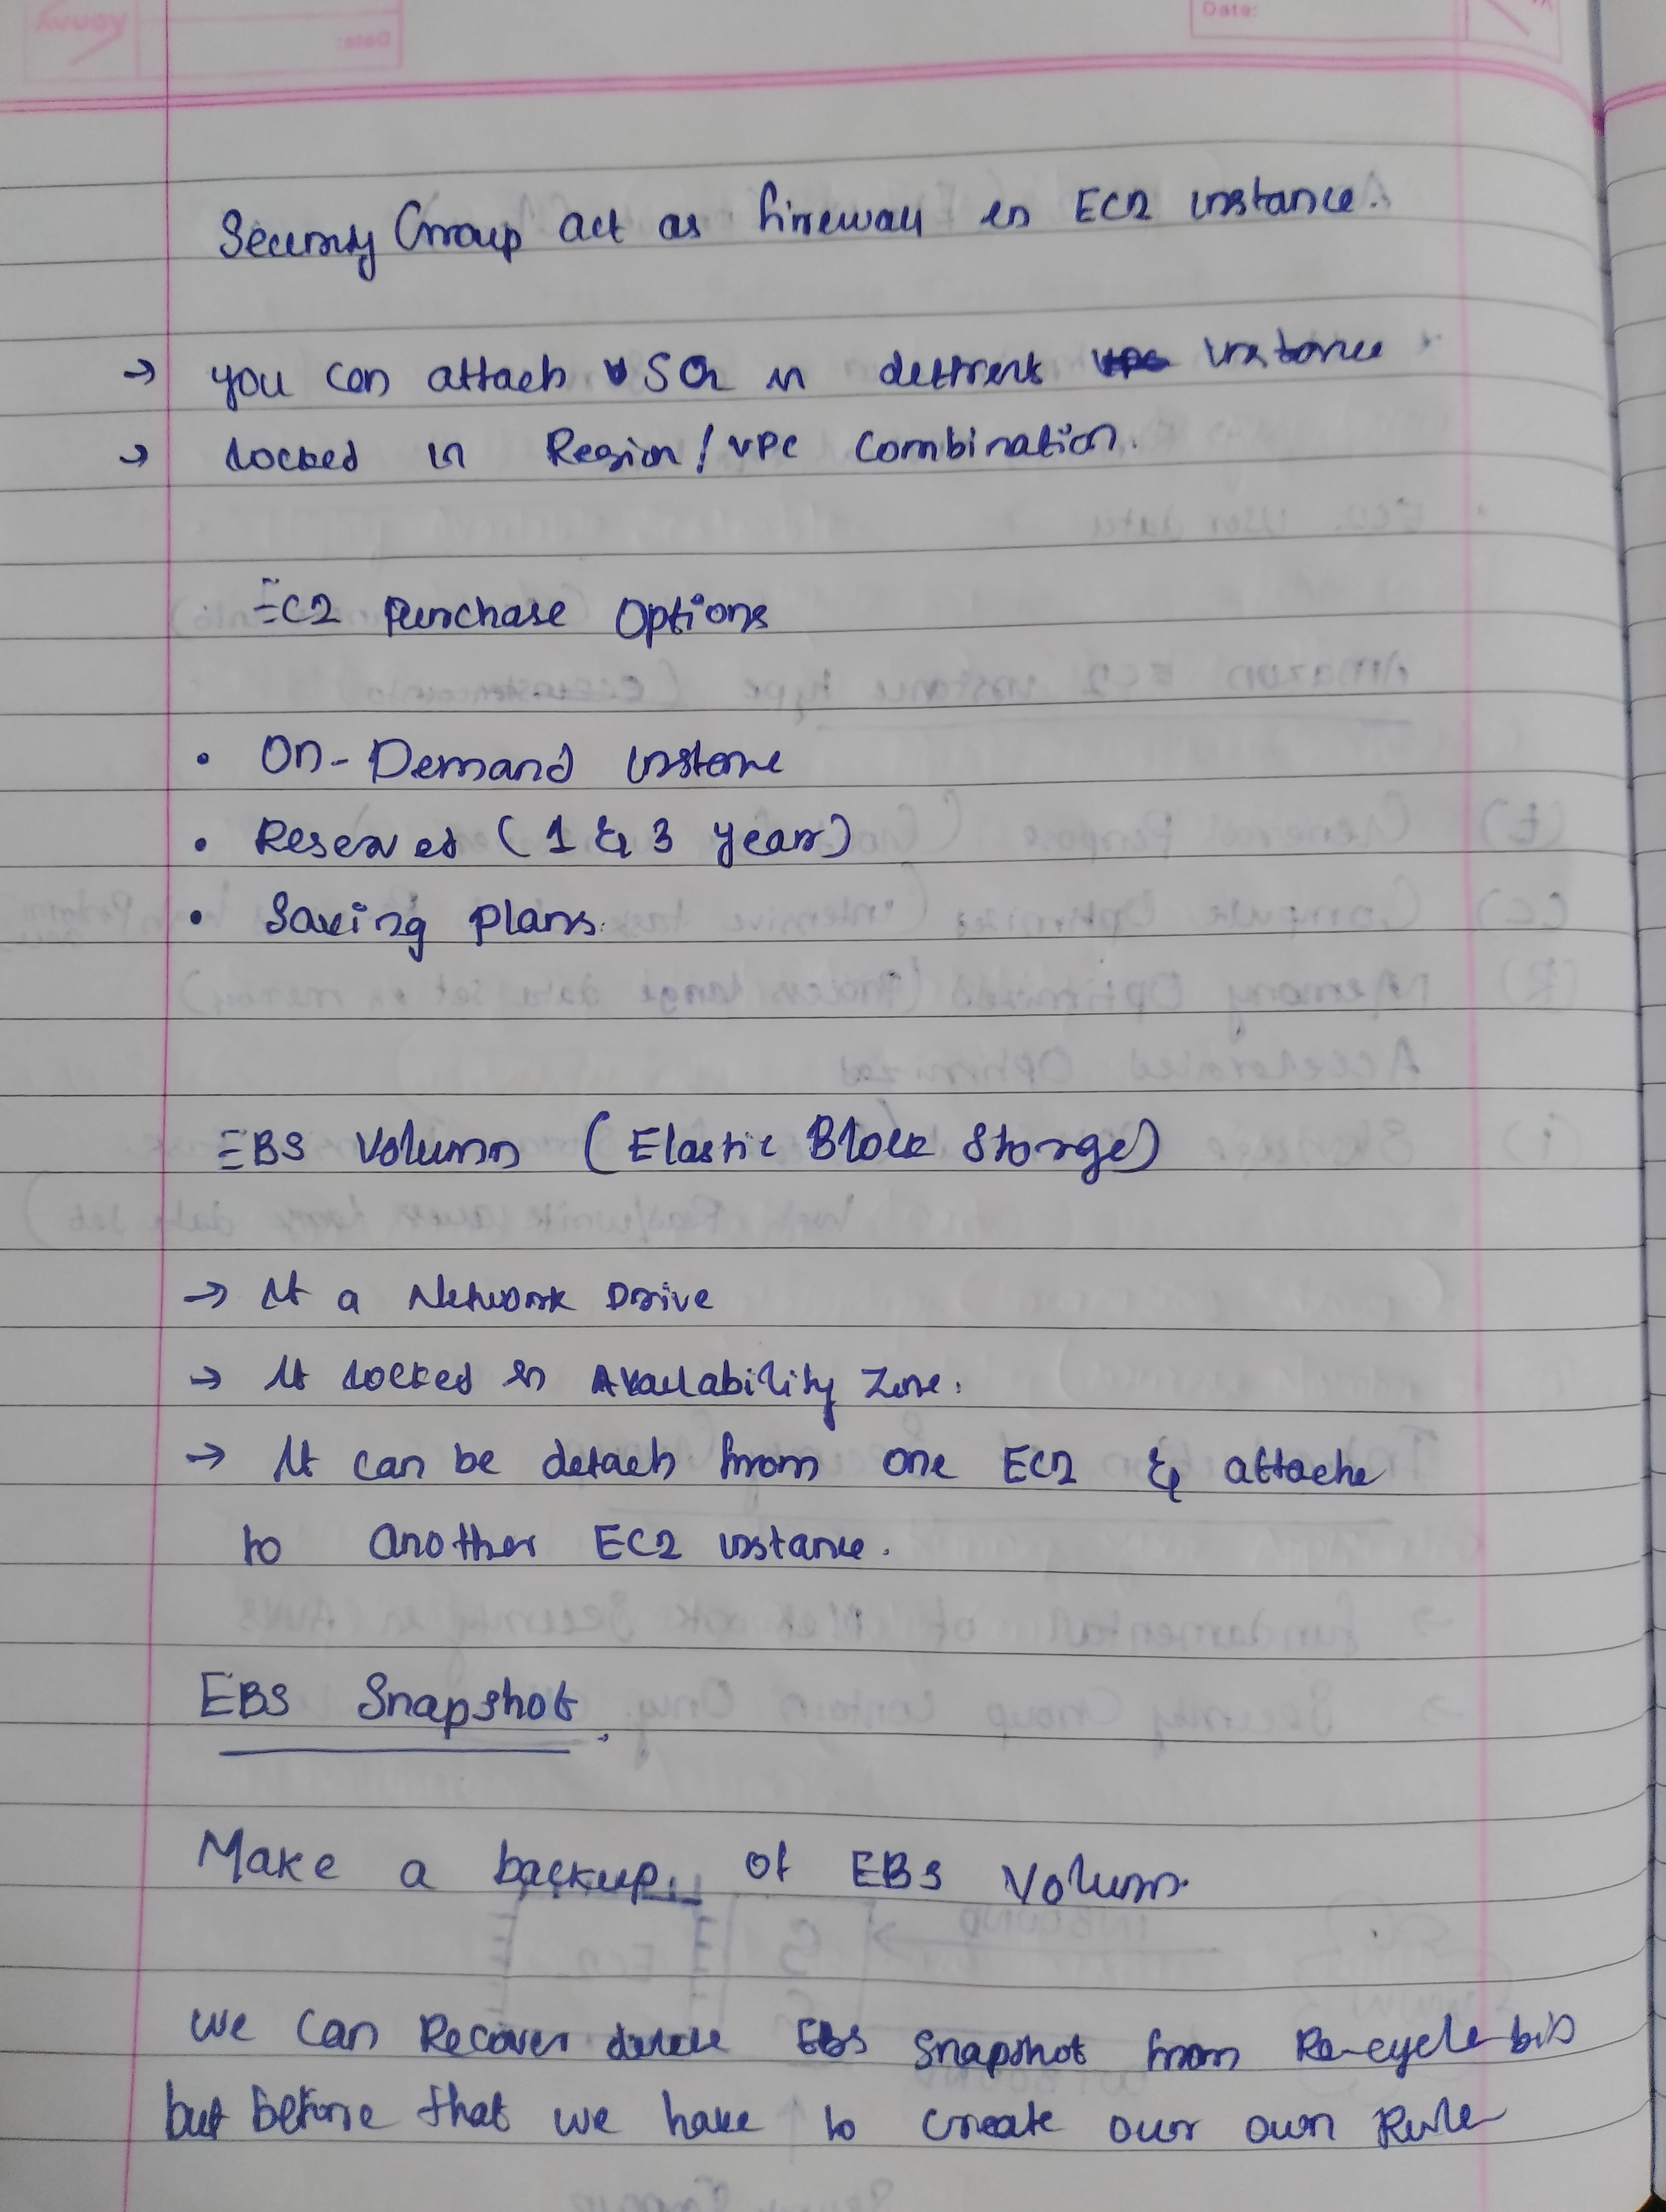 Date:
Security Group act as fireway in EC2 instance.
→ you can attach SG in different instance
→ Locked in Region/VPC Combination.
EC2 Purchase Options
• On-Demand instance
• Reserved (1 & 3 year)
• Saving Plans.
EBS Volumn (Elastic Block Storage)
→ It a Network Drive
→ It Locked in Availability Zone.
→ It can be detach from one EC2 & attache
to another EC2 instance.
EBS Snapshot.
Make a backup of EBS Volumn.
We can Recover delete EBS Snapshot from Re-cycle bin
but before that we have to create our own Rule